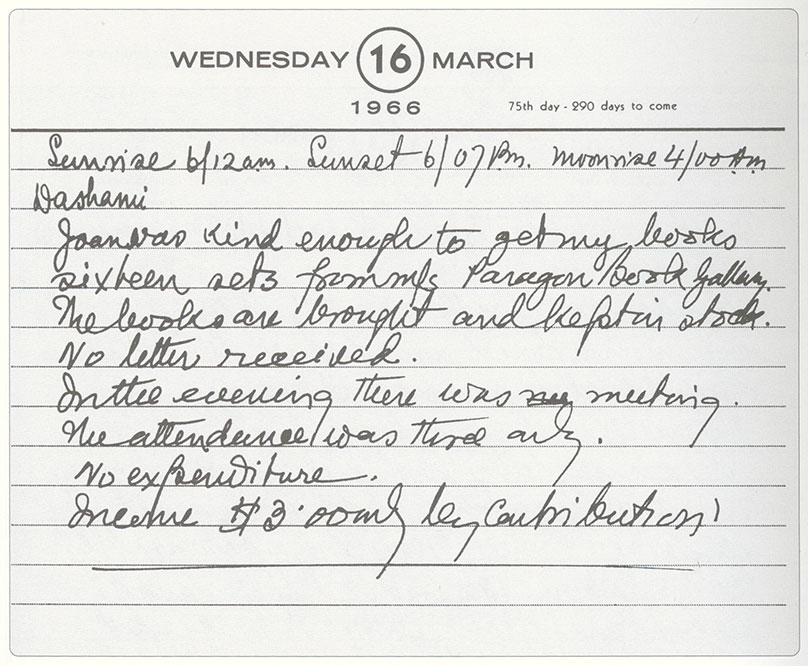 WEDNESDAY 16 MARCH
1966 75th day - 290 days to come
Sunrise 6/12am. Sunset 6/07 P.m. Moonrise 4/00 A.m
Dashami
Joan was kind enough to get my books
sixteen sets from m/s Paragon Book Gallery.
The books are brought and kept in stock.
No letter received.
In the evening there was meeting.
The attendance was three only.
No expenditure.
Income $3.00 only by contribution!